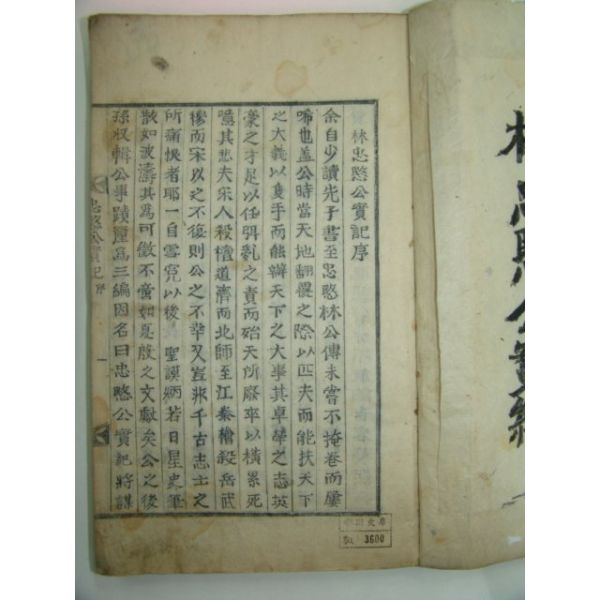 林忠愍公實紀
林忠愍公實記序
余自少讀先子書至忠愍林公傳未嘗不掩卷而屢
唏也盖公時當天地翻覆之際以匹夫而能扶天下
之大義以隻手而能辦天下之大事其卓犖之志英
豪之才足以任弭亂之責而殆天所廢卒以橫累死
噫其悲夫宋人殺檀道濟而北師至江秦檜殺岳武
穆而宋以之不復則公之不幸又豈非千古志士之
所痛恨者耶一自雪寃以後 聖謨炳若日星史筆
散如波濤其爲可徵不啻如夏殷之文獻矣公之後
孫收輯公事蹟釐爲三編因名曰忠愍公實紀將謀
忠愍公實記 序 一
3600